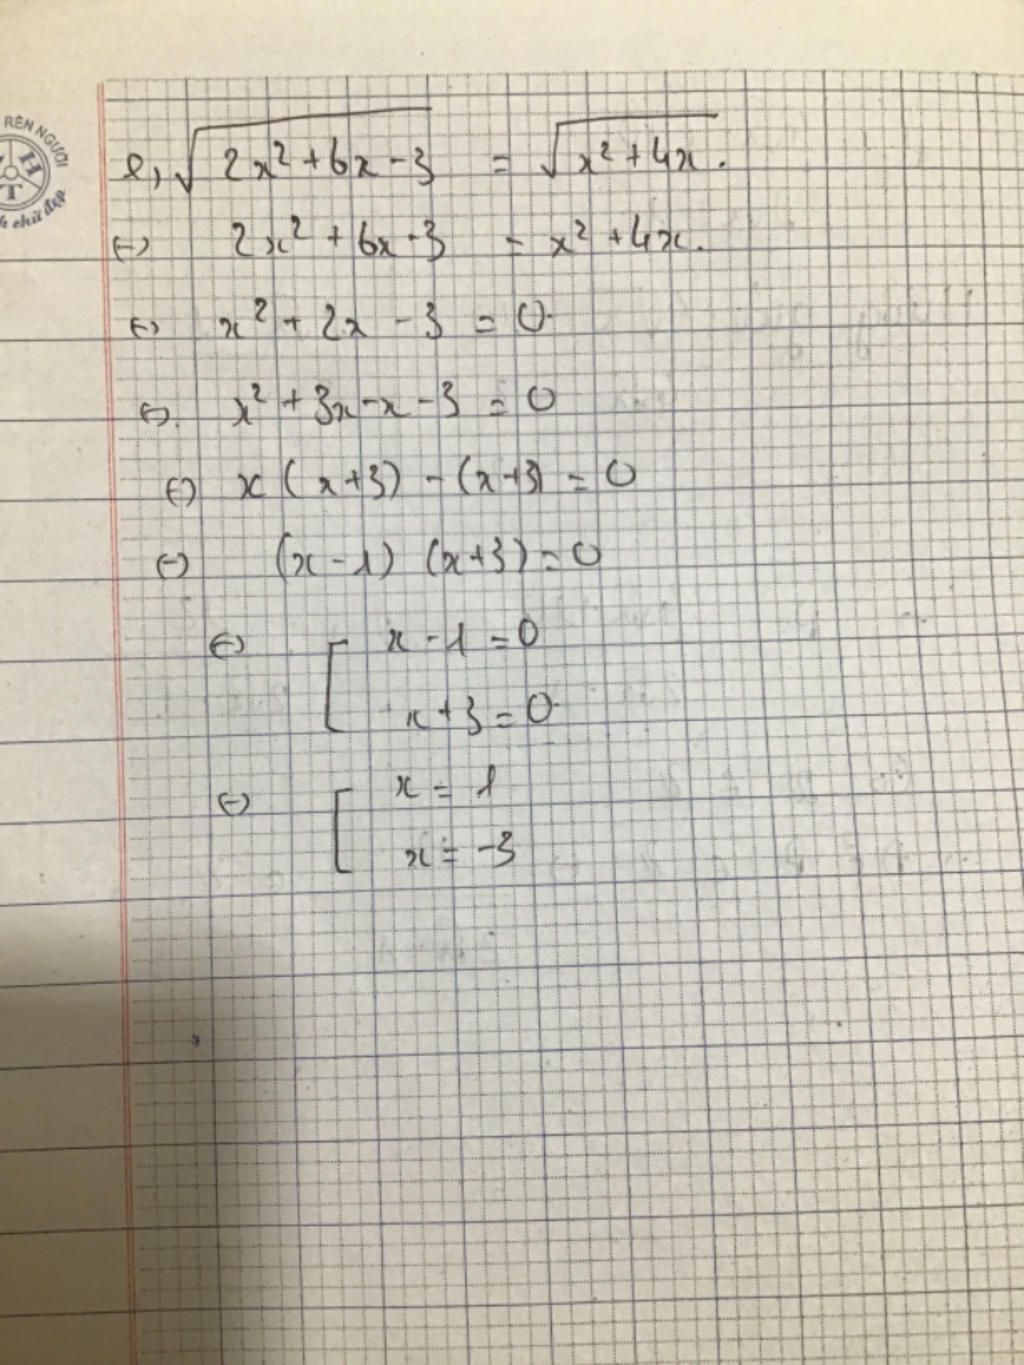 RÈN NGƯỜI
H
T
chữ đẹp
e, √(2x² + 6x - 3) = √(x² + 4x).
(-) 2x² + 6x - 3 = x² + 4x.
(-) x² + 2x - 3 = 0
(-) x² + 3x - x - 3 = 0
(-) x (x+3) - (x+3) = 0
(-) (x - 1) (x+3) = 0
(-) [ x - 1 = 0
x + 3 = 0
(-) [ x = 1
x = -3